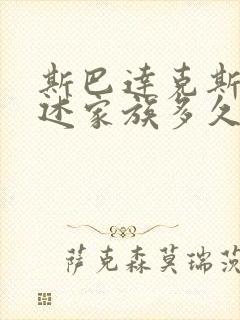 斯巴达克斯
述家族多久
萨克森莫瑞茨